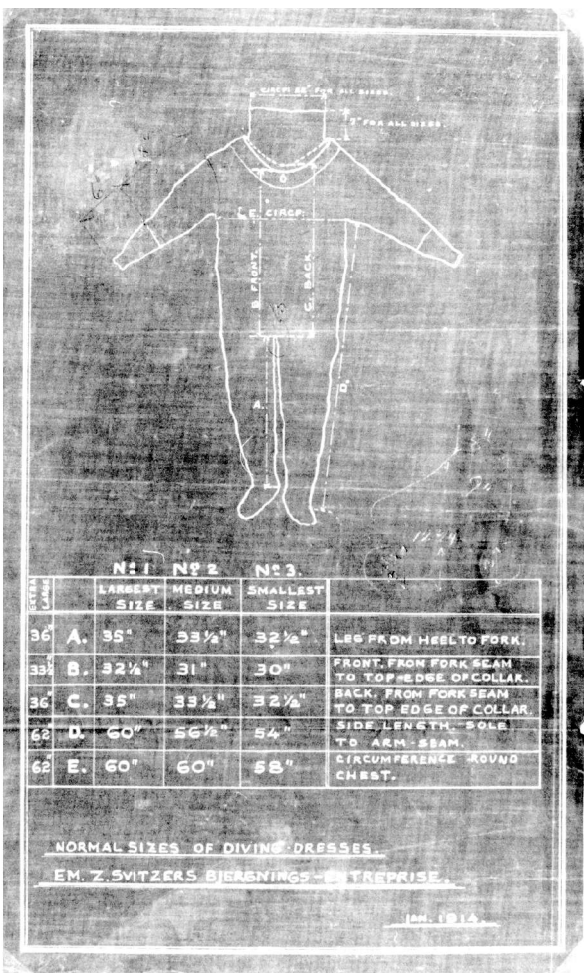 CIRCF: 22" FOR ALL SIZES.
7" FOR ALL SIZES.
E. CIRCF:
B FRONT.
C. BACK.
A.
D.
12.24
Nº 1 Nº 2 Nº 3.
EXTRA LARGE LARGEST SIZE MEDIUM SIZE SMALLEST SIZE
36" A. 35" 33½" 32½" LEG FROM HEEL TO FORK.
33½" B. 32½" 31" 30" FRONT. FROM FORK SEAM
TO TOP-EDGE OF COLLAR.
36" C. 35" 33½" 32½" BACK. FROM FORK SEAM
TO TOP EDGE OF COLLAR.
62" D. 60" 56½" 54" SIDE LENGTH. SOLE
TO ARM-SEAM.
62" E. 60" 60" 58" CIRCUMFERENCE ROUND
CHEST.
NORMAL SIZES OF DIVING-DRESSES.
EM. Z. SVITZERS BJERGNINGS-ENTREPRISE.
JAN. 1914.